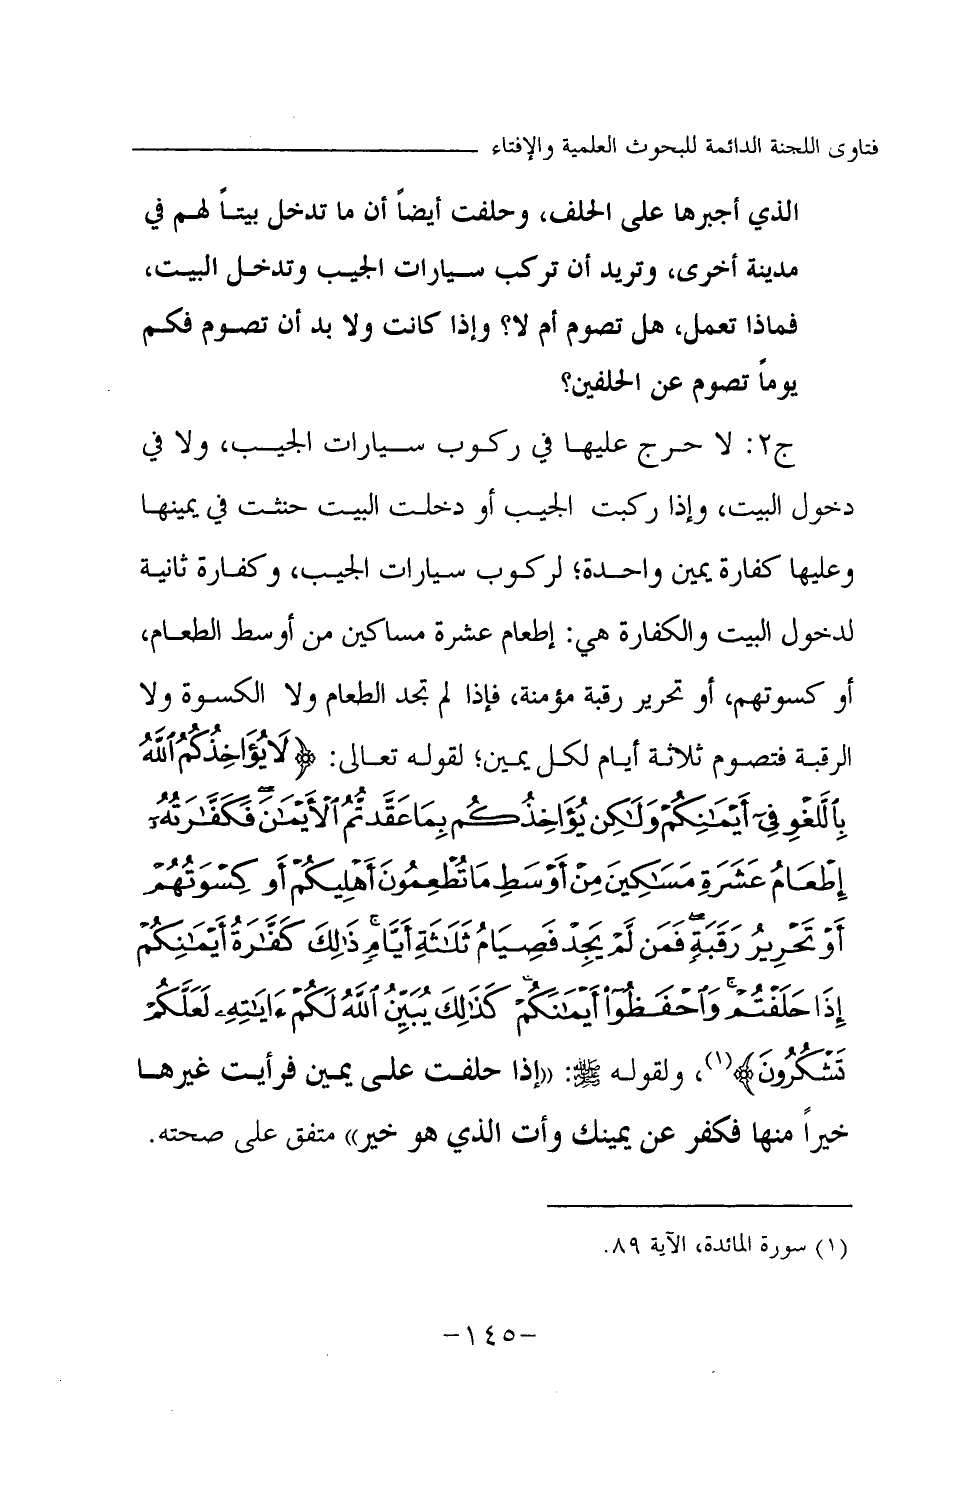 فتاوى اللجنة الدائمة للبحوث العلمية والإفتاء
الذي أجبرها على الحلف، وحلفت أيضاً أن ما تدخل بيتاً لهم في
مدينة أخرى، وتريد أن تركب سيارات الجيب وتدخل البيت،
فماذا تعمل، هل تصوم أم لا؟ وإذا كانت ولا بد أن تصوم فكم
يوماً تصوم عن الحلفين؟
ج٢: لا حرج عليها في ركوب سيارات الجيب، ولا في
دخول البيت، وإذا ركبت الجيب أو دخلت البيت حنثت في يمينها
وعليها كفارة يمين واحدة؛ لركوب سيارات الجيب، وكفارة ثانية
لدخول البيت والكفارة هي: إطعام عشرة مساكين من أوسط الطعام،
أو كسوتهم، أو تحرير رقبة مؤمنة، فإذا لم تجد الطعام ولا الكسوة ولا
الرقبة فتصوم ثلاثة أيام لكل يمين؛ لقوله تعالى: ﴿لَا يُؤَاخِذُكُمُ ٱللَّهُ
بِٱللَّغْوِ فِىٓ أَيْمَـٰنِكُمْ وَلَـٰكِن يُؤَاخِذُكُم بِمَا عَقَّدتُّمُ ٱلْأَيْمَـٰنَ ۖ فَكَفَّـٰرَتُهُۥٓ
إِطْعَامُ عَشَرَةِ مَسَـٰكِينَ مِنْ أَوْسَطِ مَا تُطْعِمُونَ أَهْلِيكُمْ أَوْ كِسْوَتُهُمْ
أَوْ تَحْرِيرُ رَقَبَةٍ ۖ فَمَن لَّمْ يَجِدْ فَصِيَامُ ثَلَـٰثَةِ أَيَّامٍ ۚ ذَٰلِكَ كَفَّـٰرَةُ أَيْمَـٰنِكُمْ
إِذَا حَلَفْتُمْ ۚ وَٱحْفَظُوٓا۟ أَيْمَـٰنَكُمْ ۚ كَذَٰلِكَ يُبَيِّنُ ٱللَّهُ لَكُمْ ءَايَـٰتِهِۦ لَعَلَّكُمْ
تَشْكُرُونَ﴾(١)، ولقوله ﷺ: «إذا حلفت على يمين فرأيت غيرها
خيراً منها فكفر عن يمينك وأت الذي هو خير» متفق على صحته.
(١) سورة المائدة، الآية ٨٩.
-١٤٥-